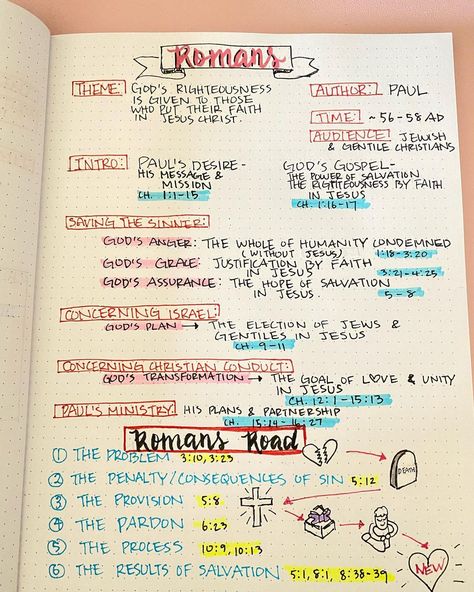 Romans
THEME: GOD'S RIGHTEOUSNESS
IS GIVEN TO THOSE
WHO PUT THEIR FAITH
IN JESUS CHRIST.
AUTHOR: PAUL
TIME: ~56-58 AD
AUDIENCE: JEWISH
& GENTILE CHRISTIANS
INTRO: PAUL'S DESIRE-
HIS MESSAGE &
MISSION
CH. 1:1-15
GOD'S GOSPEL-
THE POWER OF SALVATION
THE RIGHTEOUSNESS BY FAITH
IN JESUS
CH. 1:16-17
SAVING THE SINNER:
GOD'S ANGER: THE WHOLE OF HUMANITY CONDEMNED
(WITHOUT JESUS) 1:18-3:20
GOD'S GRACE: JUSTIFICATION BY FAITH
IN JESUS 3:21-4:25
GOD'S ASSURANCE: THE HOPE OF SALVATION
IN JESUS. 5-8
CONCERNING ISRAEL:
GOD'S PLAN → THE ELECTION OF JEWS &
GENTILES IN JESUS
CH. 9-11
CONCERNING CHRISTIAN CONDUCT:
GOD'S TRANSFORMATION → THE GOAL OF L♥VE & UNITY
IN JESUS
CH. 12:1-15:13
PAUL'S MINISTRY: HIS PLANS & PARTNERSHIP
CH. 15:14-16:27
Romans Road
① THE PROBLEM 3:10, 3:23
② THE PENALTY/CONSEQUENCES OF SIN 5:12
③ THE PROVISION 5:8
④ THE PARDON 6:23
⑤ THE PROCESS 10:9, 10:13
⑥ THE RESULTS OF SALVATION 5:1, 8:1, 8:38-39
DEATH
NEW